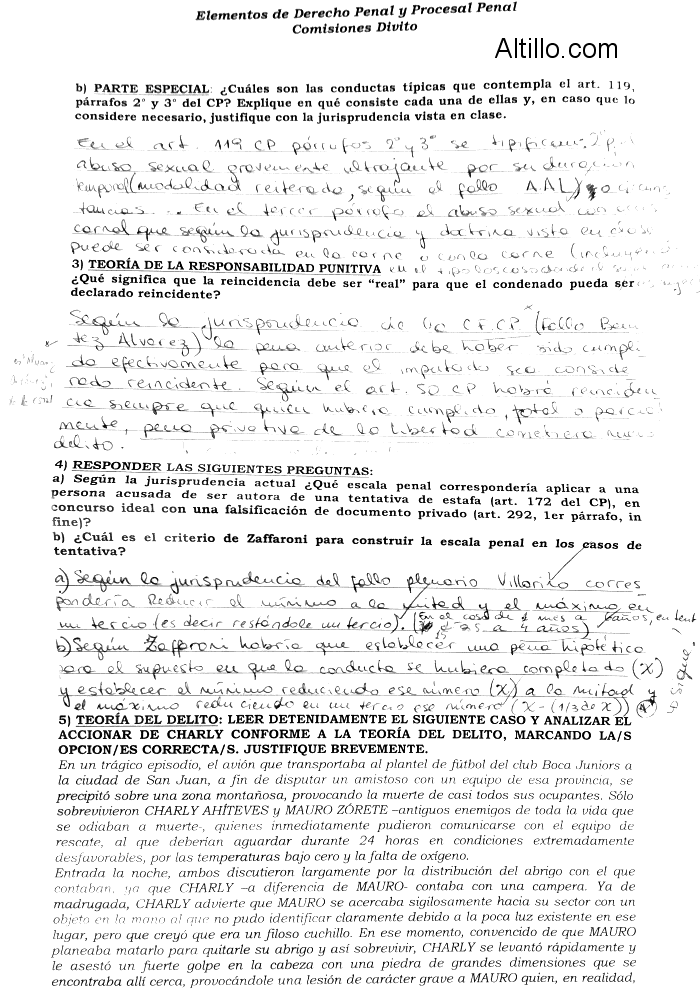 Elementos de Derecho Penal y Procesal Penal
Comisiones Divito
Altillo.com
b) PARTE ESPECIAL: ¿Cuáles son las conductas típicas que contempla el art. 119,
párrafos 2° y 3° del CP? Explique en qué consiste cada una de ellas y, en caso que lo
considere necesario, justifique con la jurisprudencia vista en clase.
En el art. 119 CP párrafos 2° y 3° se tipifican: 2°
abuso sexual gravemente ultrajante por su duración
temporal (modalidad reiterada, según el fallo A.AL) y o circuns
tancias... En el tercer párrafo el abuso sexual con acceso
carnal que según la jurisprudencia y doctrina vista en clase
puede ser considerada en la carne o con la carne (incluyendo
3) TEORÍA DE LA RESPONSABILIDAD PUNITIVA en el tipo los casos donde el
¿Qué significa que la reincidencia debe ser “real” para que el condenado pueda ser
declarado reincidente?
Según la jurisprudencia de la CFCP (Fallo Bení
tez Alvarez) la pena anterior debe haber sido cumpli
da efectivamente para que el imputado sea conside
rado reincidente. Según el art. 50 CP habrá reinciden
cia siempre que quien hubiera cumplido, total o parcial
mente, pena privativa de la libertad cometiera nuevo
delito.
4) RESPONDER LAS SIGUIENTES PREGUNTAS:
a) Según la jurisprudencia actual ¿Qué escala penal correspondería aplicar a una
persona acusada de ser autora de una tentativa de estafa (art. 172 del CP), en
concurso ideal con una falsificación de documento privado (art. 292, 1er párrafo, in
fine)?
b) ¿Cuál es el criterio de Zaffaroni para construir la escala penal en los casos de
tentativa?
a) Según la jurisprudencia del fallo plenario Villarino corres
pondería Reducir el mínimo a la mitad y el máximo en
un tercio (es decir restándole un tercio). (En el caso de 1 mes a 6 años, en tent
15 a 4 años)
b) Según Zaffaroni habría que establecer una pena hipotética
para el supuesto en que la conducta se hubiera completado (X)
y establecer el mínimo reduciendo ese número (X) a la mitad y
el máximo reduciendo en un tercio ese número (X - (1/3 de X))
sigue
5) TEORÍA DEL DELITO: LEER DETENIDAMENTE EL SIGUIENTE CASO Y ANALIZAR EL
ACCIONAR DE CHARLY CONFORME A LA TEORÍA DEL DELITO, MARCANDO LA/S
OPCION/ES CORRECTA/S. JUSTIFIQUE BREVEMENTE.
En un trágico episodio, el avión que transportaba al plantel de fútbol del club Boca Juniors a
la ciudad de San Juan, a fin de disputar un amistoso con un equipo de esa provincia, se
precipitó sobre una zona montañosa, provocando la muerte de casi todos sus ocupantes. Sólo
sobrevivieron CHARLY AHÍTEVES y MAURO ZÓRETE –antiguos enemigos de toda la vida que
se odiaban a muerte-, quienes inmediatamente pudieron comunicarse con el equipo de
rescate, al que deberían aguardar durante 24 horas en condiciones extremadamente
desfavorables, por las temperaturas bajo cero y la falta de oxígeno.
Entrada la noche, ambos discutieron largamente por la distribución del abrigo con el que
contaban, ya que CHARLY –a diferencia de MAURO- contaba con una campera. Ya de
madrugada, CHARLY advierte que MAURO se acercaba sigilosamente hacia su sector con un
objeto en la mano al que no pudo identificar claramente debido a la poca luz existente en ese
lugar, pero que creyó que era un filoso cuchillo. En ese momento, convencido de que MAURO
planeaba matarlo para quitarle su abrigo y así sobrevivir, CHARLY se levantó rápidamente y
le asestó un fuerte golpe en la cabeza con una piedra de grandes dimensiones que se
encontraba allí cerca, provocándole una lesión de carácter grave a MAURO quien, en realidad,